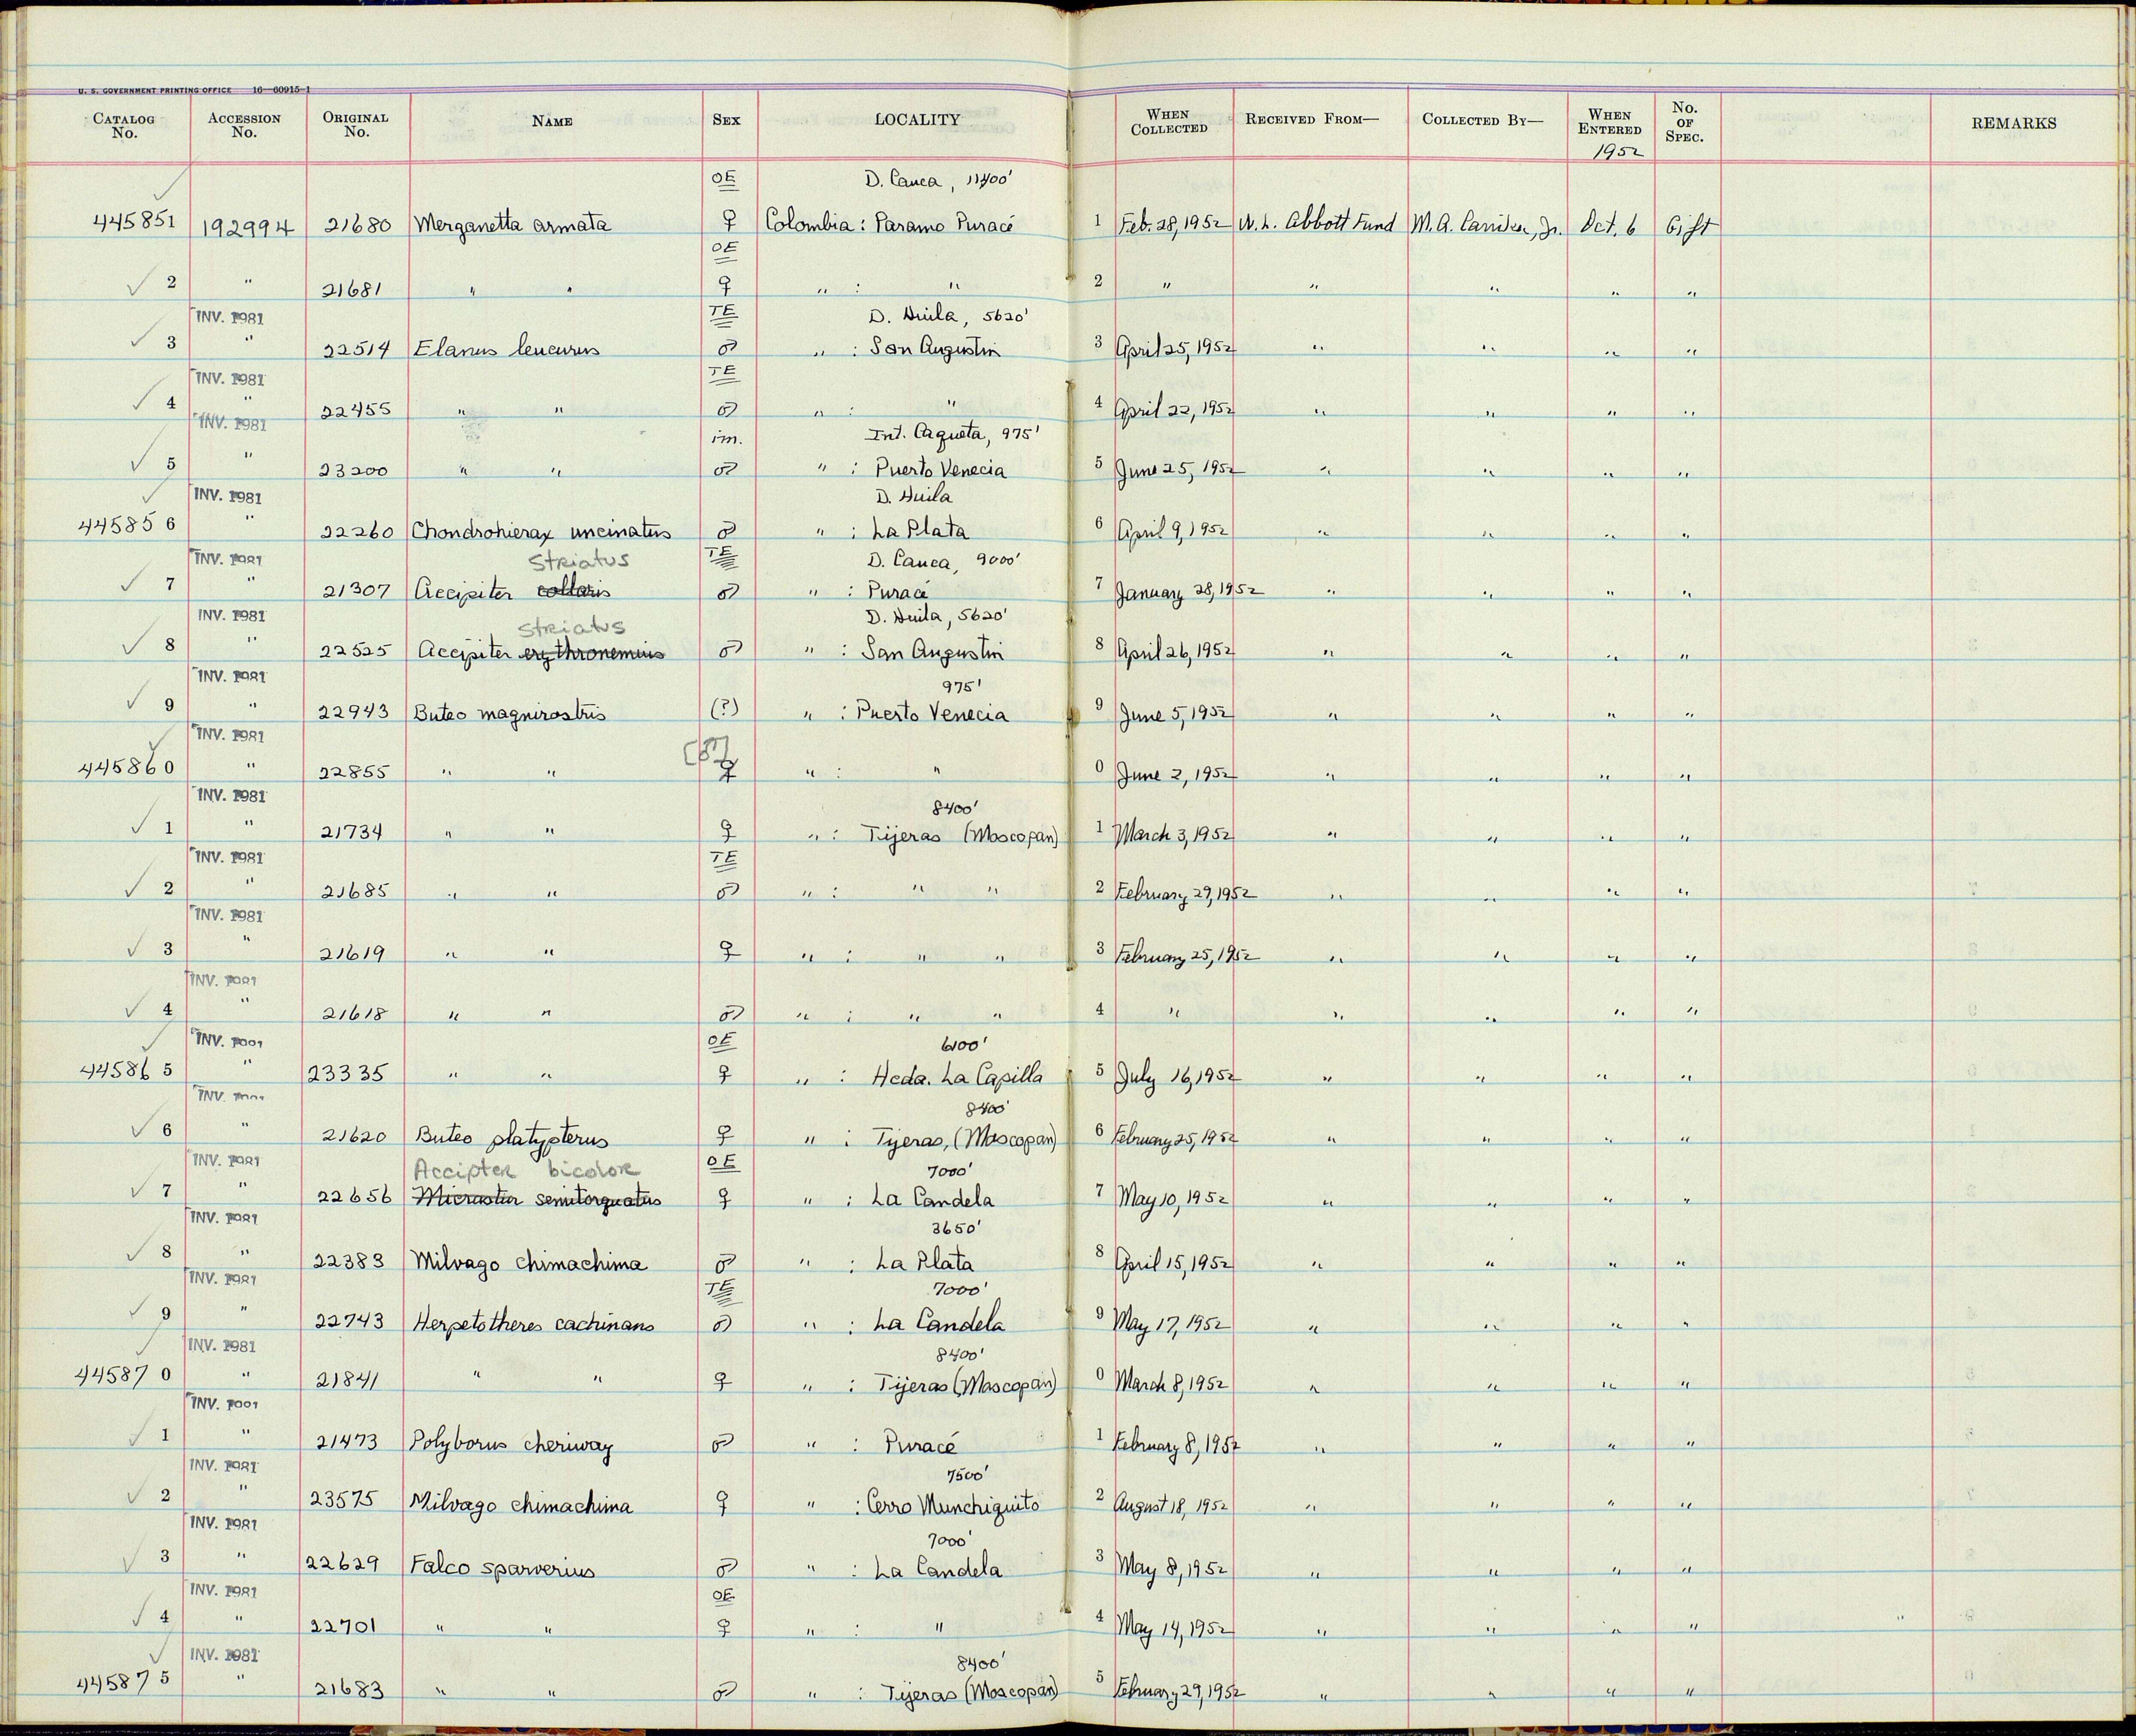 U. S. GOVERNMENT PRINTING OFFICE 16—60915-1
CATALOG No. ACCESSION No. ORIGINAL No. NAME SEX LOCALITY WHEN COLLECTED RECEIVED FROM— COLLECTED BY— WHEN ENTERED No. OF SPEC. REMARKS
1952
OE D. Cauca, 11400'
445851 192994 21680 Merganetta armata ♀ Colombia: Paramo Puracé 1 Feb. 28, 1952 W. L. Abbott Fund M. A. Carriker, Jr. Oct. 6 Gift
OE
✓ 2 " 21681 " " ♀ " : " 2 " " " " "
INV. 1981 TE D. Huila, 5620'
✓ 3 " 22514 Elanus leucurus ♂ " : San Augustin 3 April 25, 1952 " " " "
INV. 1981 TE
✓ 4 " 22455 " " ♂ " : " 4 April 22, 1952 " " " "
INV. 1981 im. Int. Caqueta, 975'
✓ 5 " 23200 " " ♂ " : Puerto Venecia 5 June 25, 1952 " " " "
INV. 1981 D. Huila
445856 " 22260 Chondrohierax uncinatus ♂ " : La Plata 6 April 9, 1952 " " " "
INV. 1981 striatus TE D. Cauca, 9000'
✓ 7 " 21307 Accipiter collaris ♂ " : Puracé 7 January 28, 1952 " " " "
INV. 1981 striatus D. Huila, 5620'
✓ 8 " 22525 Accipiter erythronemius ♂ " : San Augustin 8 April 26, 1952 " " " "
INV. 1981 975'
✓ 9 " 22943 Buteo magnirostris (?) " : Puerto Venecia 9 June 5, 1952 " " " "
INV. 1981 [♂?]
445860 " 22855 " " ♀ " : " 0 June 2, 1952 " " " "
INV. 1981 8400'
✓ 1 " 21734 " " ♀ " : Tijeras (Moscopan) 1 March 3, 1952 " " " "
INV. 1981 TE
✓ 2 " 21685 " " ♂ " : " " 2 February 29, 1952 " " " "
INV. 1981
✓ 3 " 21619 " " ♀ " : " " 3 February 25, 1952 " " " "
INV. 1981
✓ 4 " 21618 " " ♂ " : " " 4 " " " " "
INV. 1981 OE 6100'
445865 " 23335 " " ♀ " : Hcda. La Capilla 5 July 16, 1952 " " " "
INV. 8400'
✓ 6 " 21620 Buteo platypterus ♀ " : Tijeras, (Moscopan) 6 February 25, 1952 " " " "
INV. 1981 Accipter bicolor OE 7000'
✓ 7 " 22656 Micrastur semitorquatus ♀ " : La Candela 7 May 10, 1952 " " " "
INV. 1981 3650'
✓ 8 " 22383 Milvago chimachima ♂ " : La Plata 8 April 15, 1952 " " " "
INV. 1981 TE 7000'
✓ 9 " 22743 Herpetotheres cachinans ♂ " : La Candela 9 May 17, 1952 " " " "
INV. 1981 8400'
445870 " 21841 " " ♀ " : Tijeras (Moscopan) 0 March 8, 1952 " " " "
INV. 1981
✓ 1 " 21473 Polyborus cheriway ♂ " : Puracé 1 February 8, 1952 " " " "
INV. 1981 7500'
✓ 2 " 23575 Milvago chimachima ♀ " : Cerro Munchiquito 2 August 18, 1952 " " " "
INV. 1981 7000'
✓ 3 " 22629 Falco sparverius ♂ " : La Candela 3 May 8, 1952 " " " "
INV. 1981 OE
✓ 4 " 22701 " " ♀ " : " 4 May 14, 1952 " " " "
INV. 1981 8400'
445875 " 21683 " " ♂ " : Tijeras (Moscopan) 5 February 29, 1952 " " " "